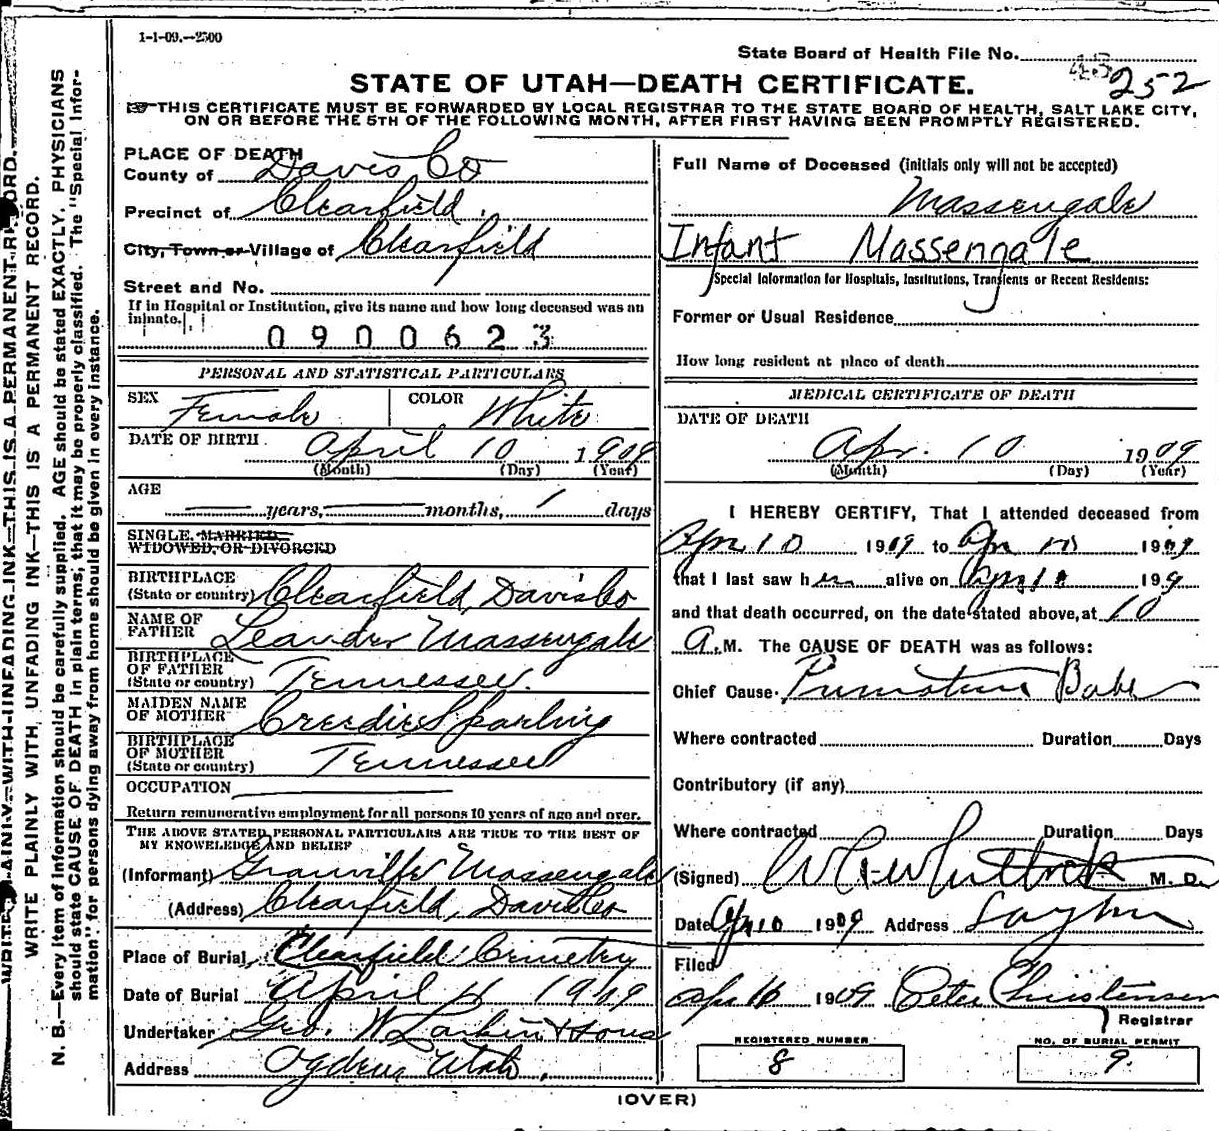 1-1-09.--2500
State Board of Health File No. 252
STATE OF UTAH—DEATH CERTIFICATE.
THIS CERTIFICATE MUST BE FORWARDED BY LOCAL REGISTRAR TO THE STATE BOARD OF HEALTH, SALT LAKE CITY,
ON OR BEFORE THE 5TH OF THE FOLLOWING MONTH, AFTER FIRST HAVING BEEN PROMPTLY REGISTERED.
WRITE PLAINLY WITH UNFADING INK—THIS IS A PERMANENT RECORD.
WRITE PLAINLY WITH UNFADING INK—THIS IS A PERMANENT RECORD.
N. B.—Every item of information should be carefully supplied. AGE should be stated EXACTLY. PHYSICIANS
should state CAUSE OF DEATH in plain terms; that it may be properly classified. The "Special Infor-
mation" for persons dying away from home should be given in every instance.
PLACE OF DEATH
County of Davis Co
Precinct of Clearfield
City, Town or Village of Clearfield
Street and No.
If in Hospital or Institution, give its name and how long deceased was an
inmate.
0900623
PERSONAL AND STATISTICAL PARTICULARS
SEX Female COLOR White
DATE OF BIRTH April 10 1909
(Month) (Day) (Year)
AGE
years, months, 1 days
SINGLE, MARRIED,
WIDOWED, OR DIVORCED
BIRTHPLACE
(State or country) Clearfield, Davis Co
NAME OF
FATHER Leander Massengale
BIRTHPLACE
OF FATHER
(State or country) Tennessee.
MAIDEN NAME
OF MOTHER Creedie Sparling
BIRTHPLACE
OF MOTHER
(State or country) Tennessee
OCCUPATION
Return remunerative employment for all persons 10 years of age and over.
THE ABOVE STATED PERSONAL PARTICULARS ARE TRUE TO THE BEST OF
MY KNOWELEDGE AND BELIEF
(Informant) Granville Massengale
(Address) Clearfield, Davis Co
Place of Burial, Clearfield Cemetry
Date of Burial April 11 1909
Undertaker Geo. W Larkin & Sons
Address Ogden Utah
Full Name of Deceased (initials only will not be accepted)
Massengale
Infant Massengale
Special Information for Hospitals, Institutions, Transients or Recent Residents:
Former or Usual Residence
How long resident at place of death
MEDICAL CERTIFICATE OF DEATH
DATE OF DEATH
Apr. 10 1909
(Month) (Day) (Year)
I HEREBY CERTIFY, That I attended deceased from
Apr 10 1909 to Apr 10 1909
that I last saw her alive on Apr 10 1909
and that death occurred, on the date stated above, at 10
A.M. The CAUSE OF DEATH was as follows:
Chief Cause Premature Babe
Where contracted Duration Days
Contributory (if any)
Where contracted Duration Days
(Signed) M. D.
Date Apr 10 1909 Address Layton
Filed
Apr 16 1909 Peter Christensen
Registrar
REGISTERED NUMBER
8
NO. OF BURIAL PERMIT
9.
(OVER)